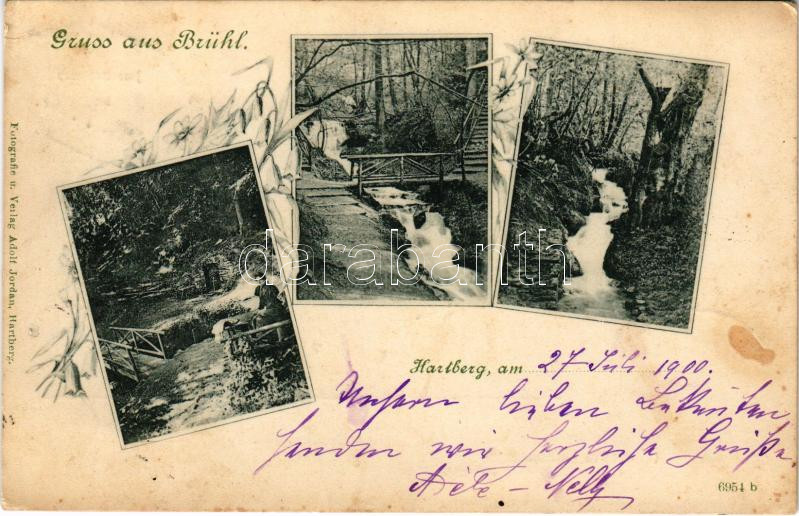 Gruss aus Brühl.
Fotografie u. Verlag Adolf Jordan, Hartberg.
darabanth
Hartberg, am 27 Juli 1900.
Unsern lieben Bekannten
senden wir herzliche Grüße
Nelly
6954 b